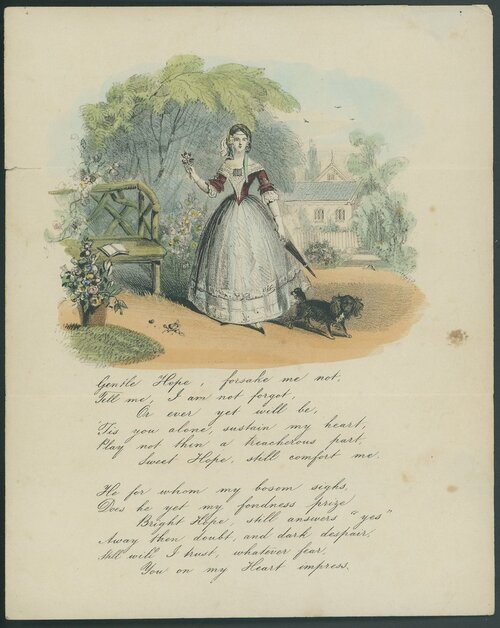 Gentle Hope, forsake me not,
Tell me, I am not forgot,
Or ever yet will be,
'Tis you alone, sustain my heart,
Play not then a treacherous part,
Sweet Hope, still comfort me.
He for whom my bosom sighs,
Does he yet my fondness prize
Bright Hope, still answers "yes"
Away then doubt, and dark despair,
Still will I trust, whatever fear,
You on my Heart impress.